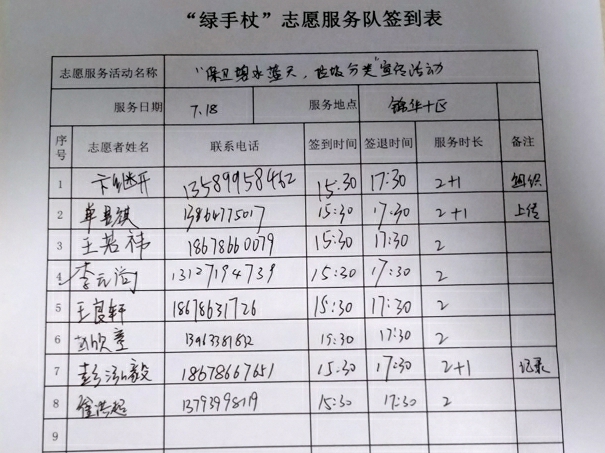 “绿手杖”志愿服务队签到表
志愿服务活动名称 “保卫碧水蓝天，垃圾分类”宣传活动
服务日期 7.18 服务地点 锦华十区
序号 志愿者姓名 联系电话 签到时间 签退时间 服务时长 备注
1 卞继开 13589958462 15:30 17:30 2+1 组织
2 单昱祺 13864775017 15:30 17:30 2+1 上传
3 王若祎 18678660079 15:30 17:30 2
4 李元尚 13127194739 15:30 17:30 2
5 王良轩 18678631726 15:30 17:30 2
6 15:30 17:30 2
7 彭泓毅 18678667651 15:30 17:30 2+1 记录
8 崔浩超 13793998719 15:30 17:30 2
9